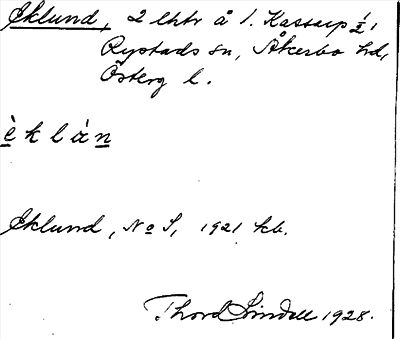 Eklund, 2 lhtr å 1. Kassarp
Rystads sn, Åkerbo hd,
Österg l.
è k l á n
Eklund, No S, 1921 kb.
Thord Lindell 1928.